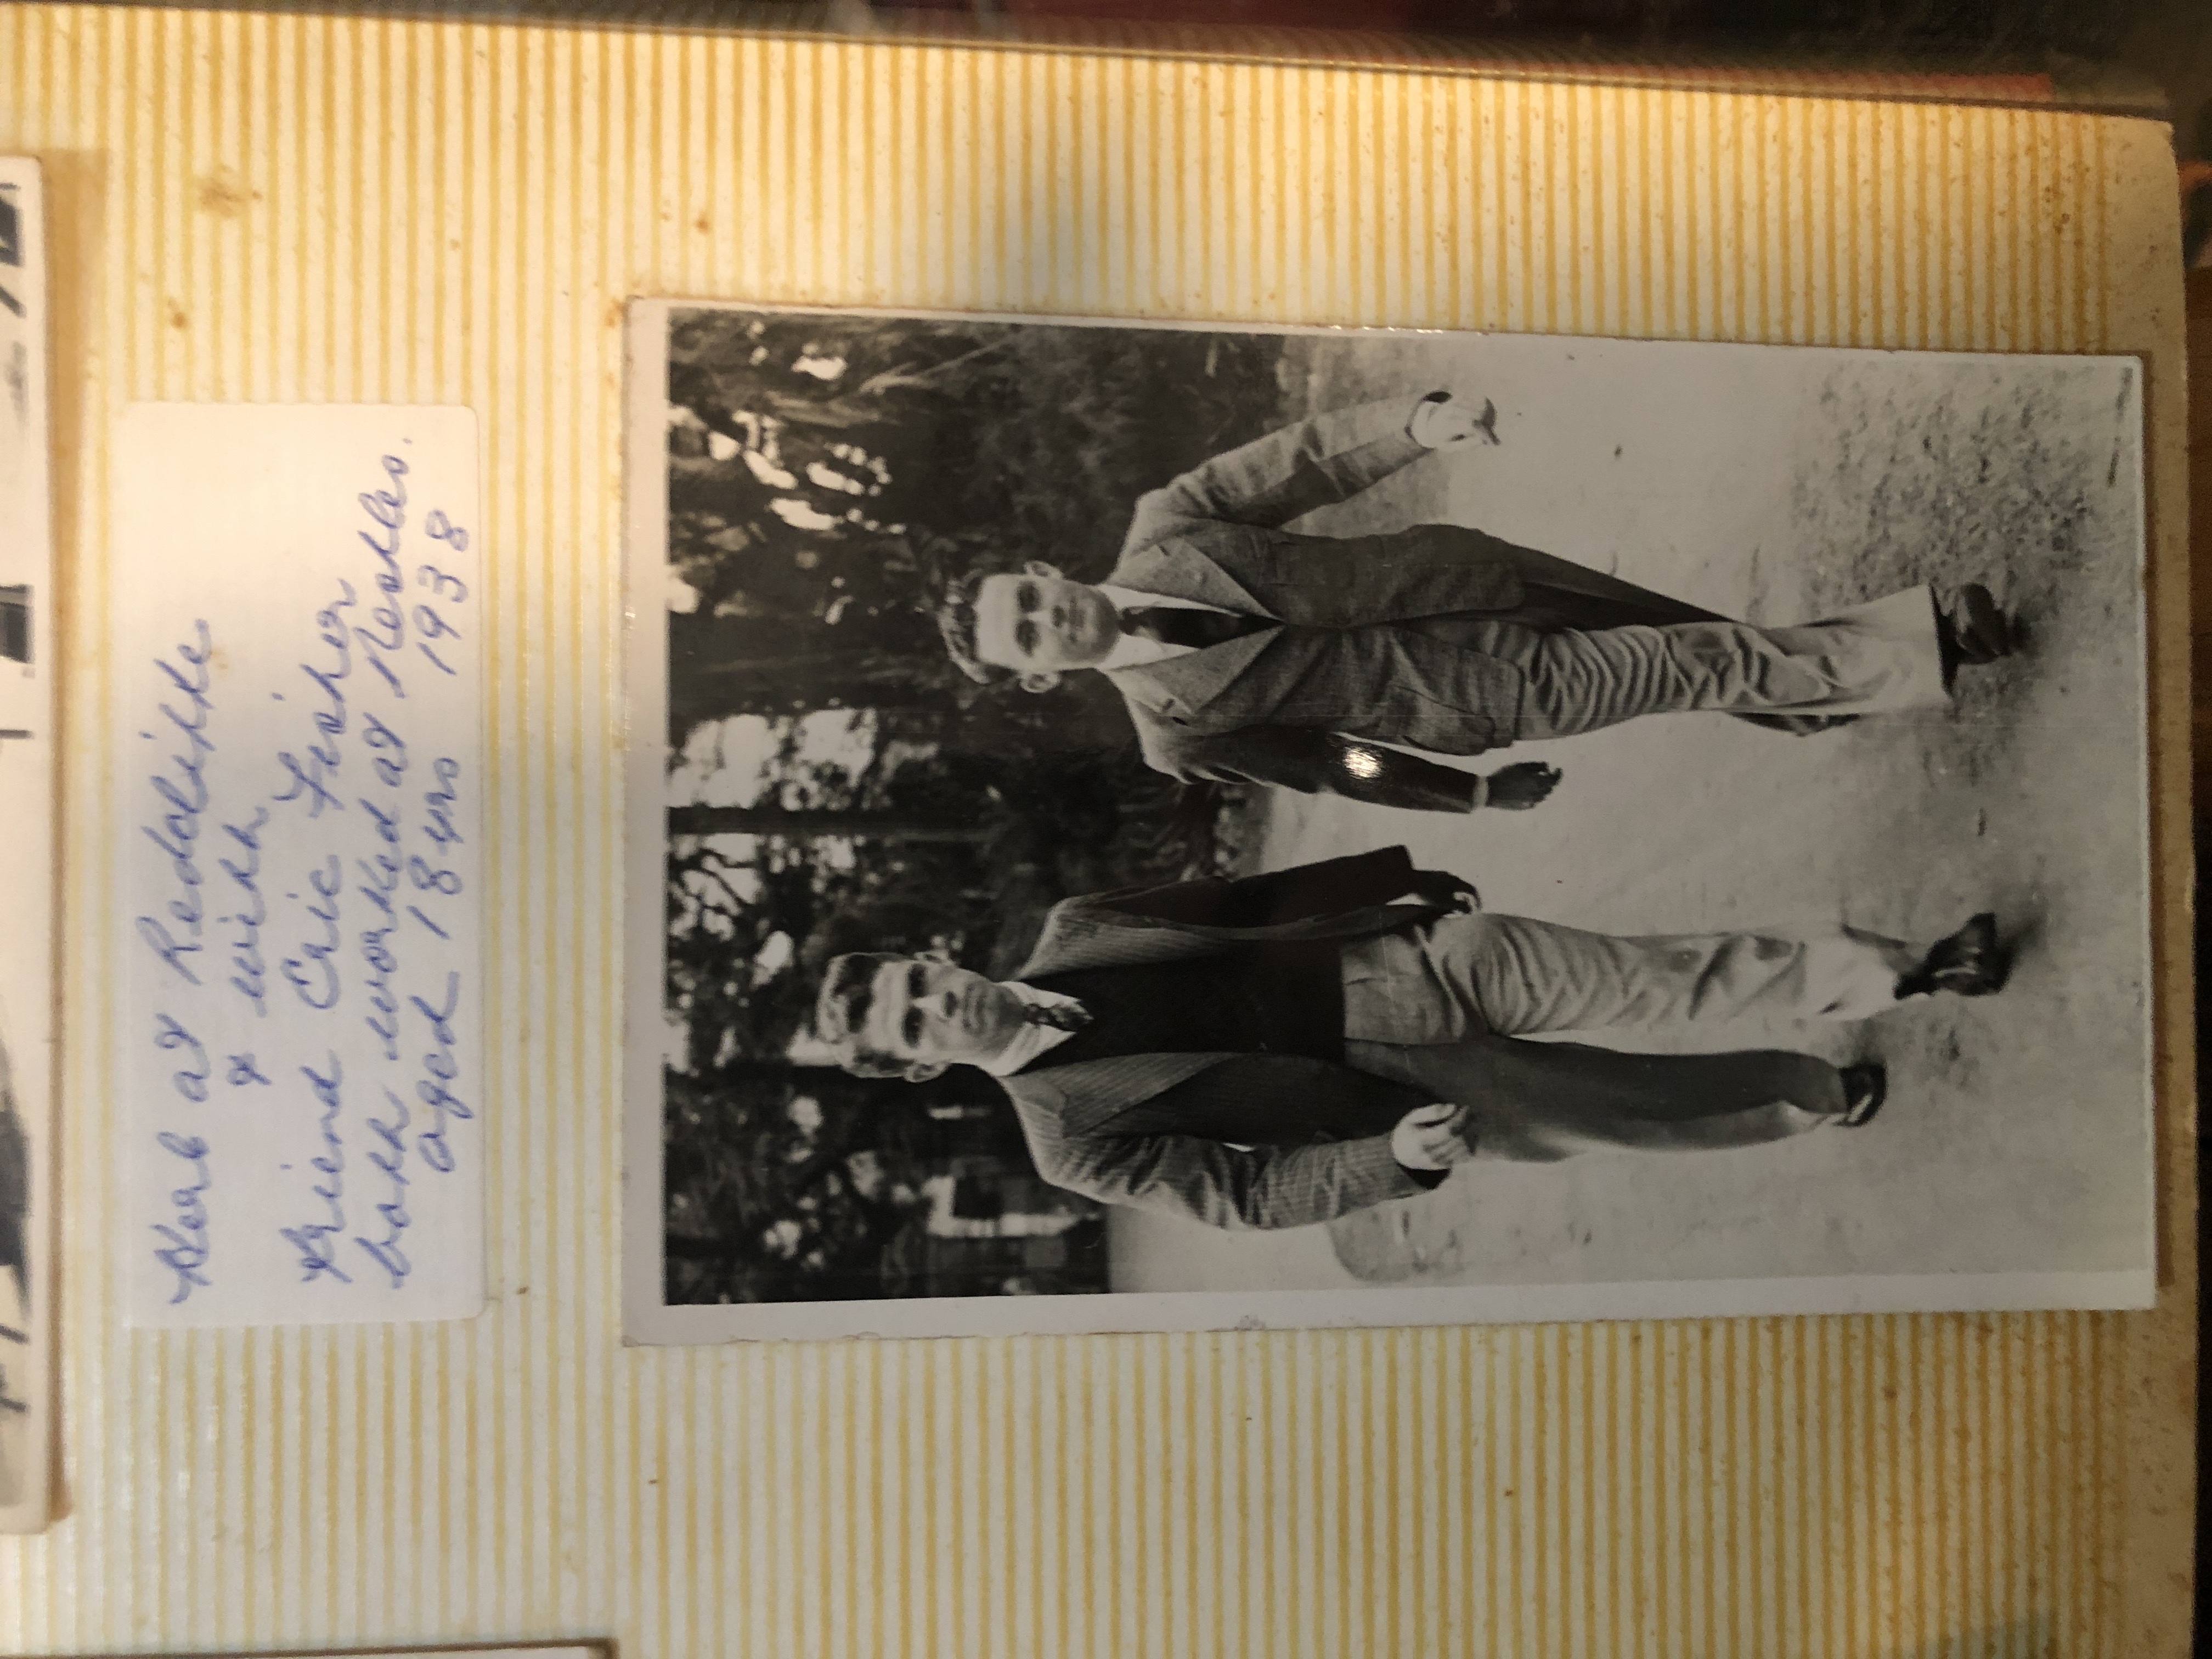 Herb at Redcliffe
& with
friend Eric Fisher
both worked at Nestles.
aged 18 yrs 1938